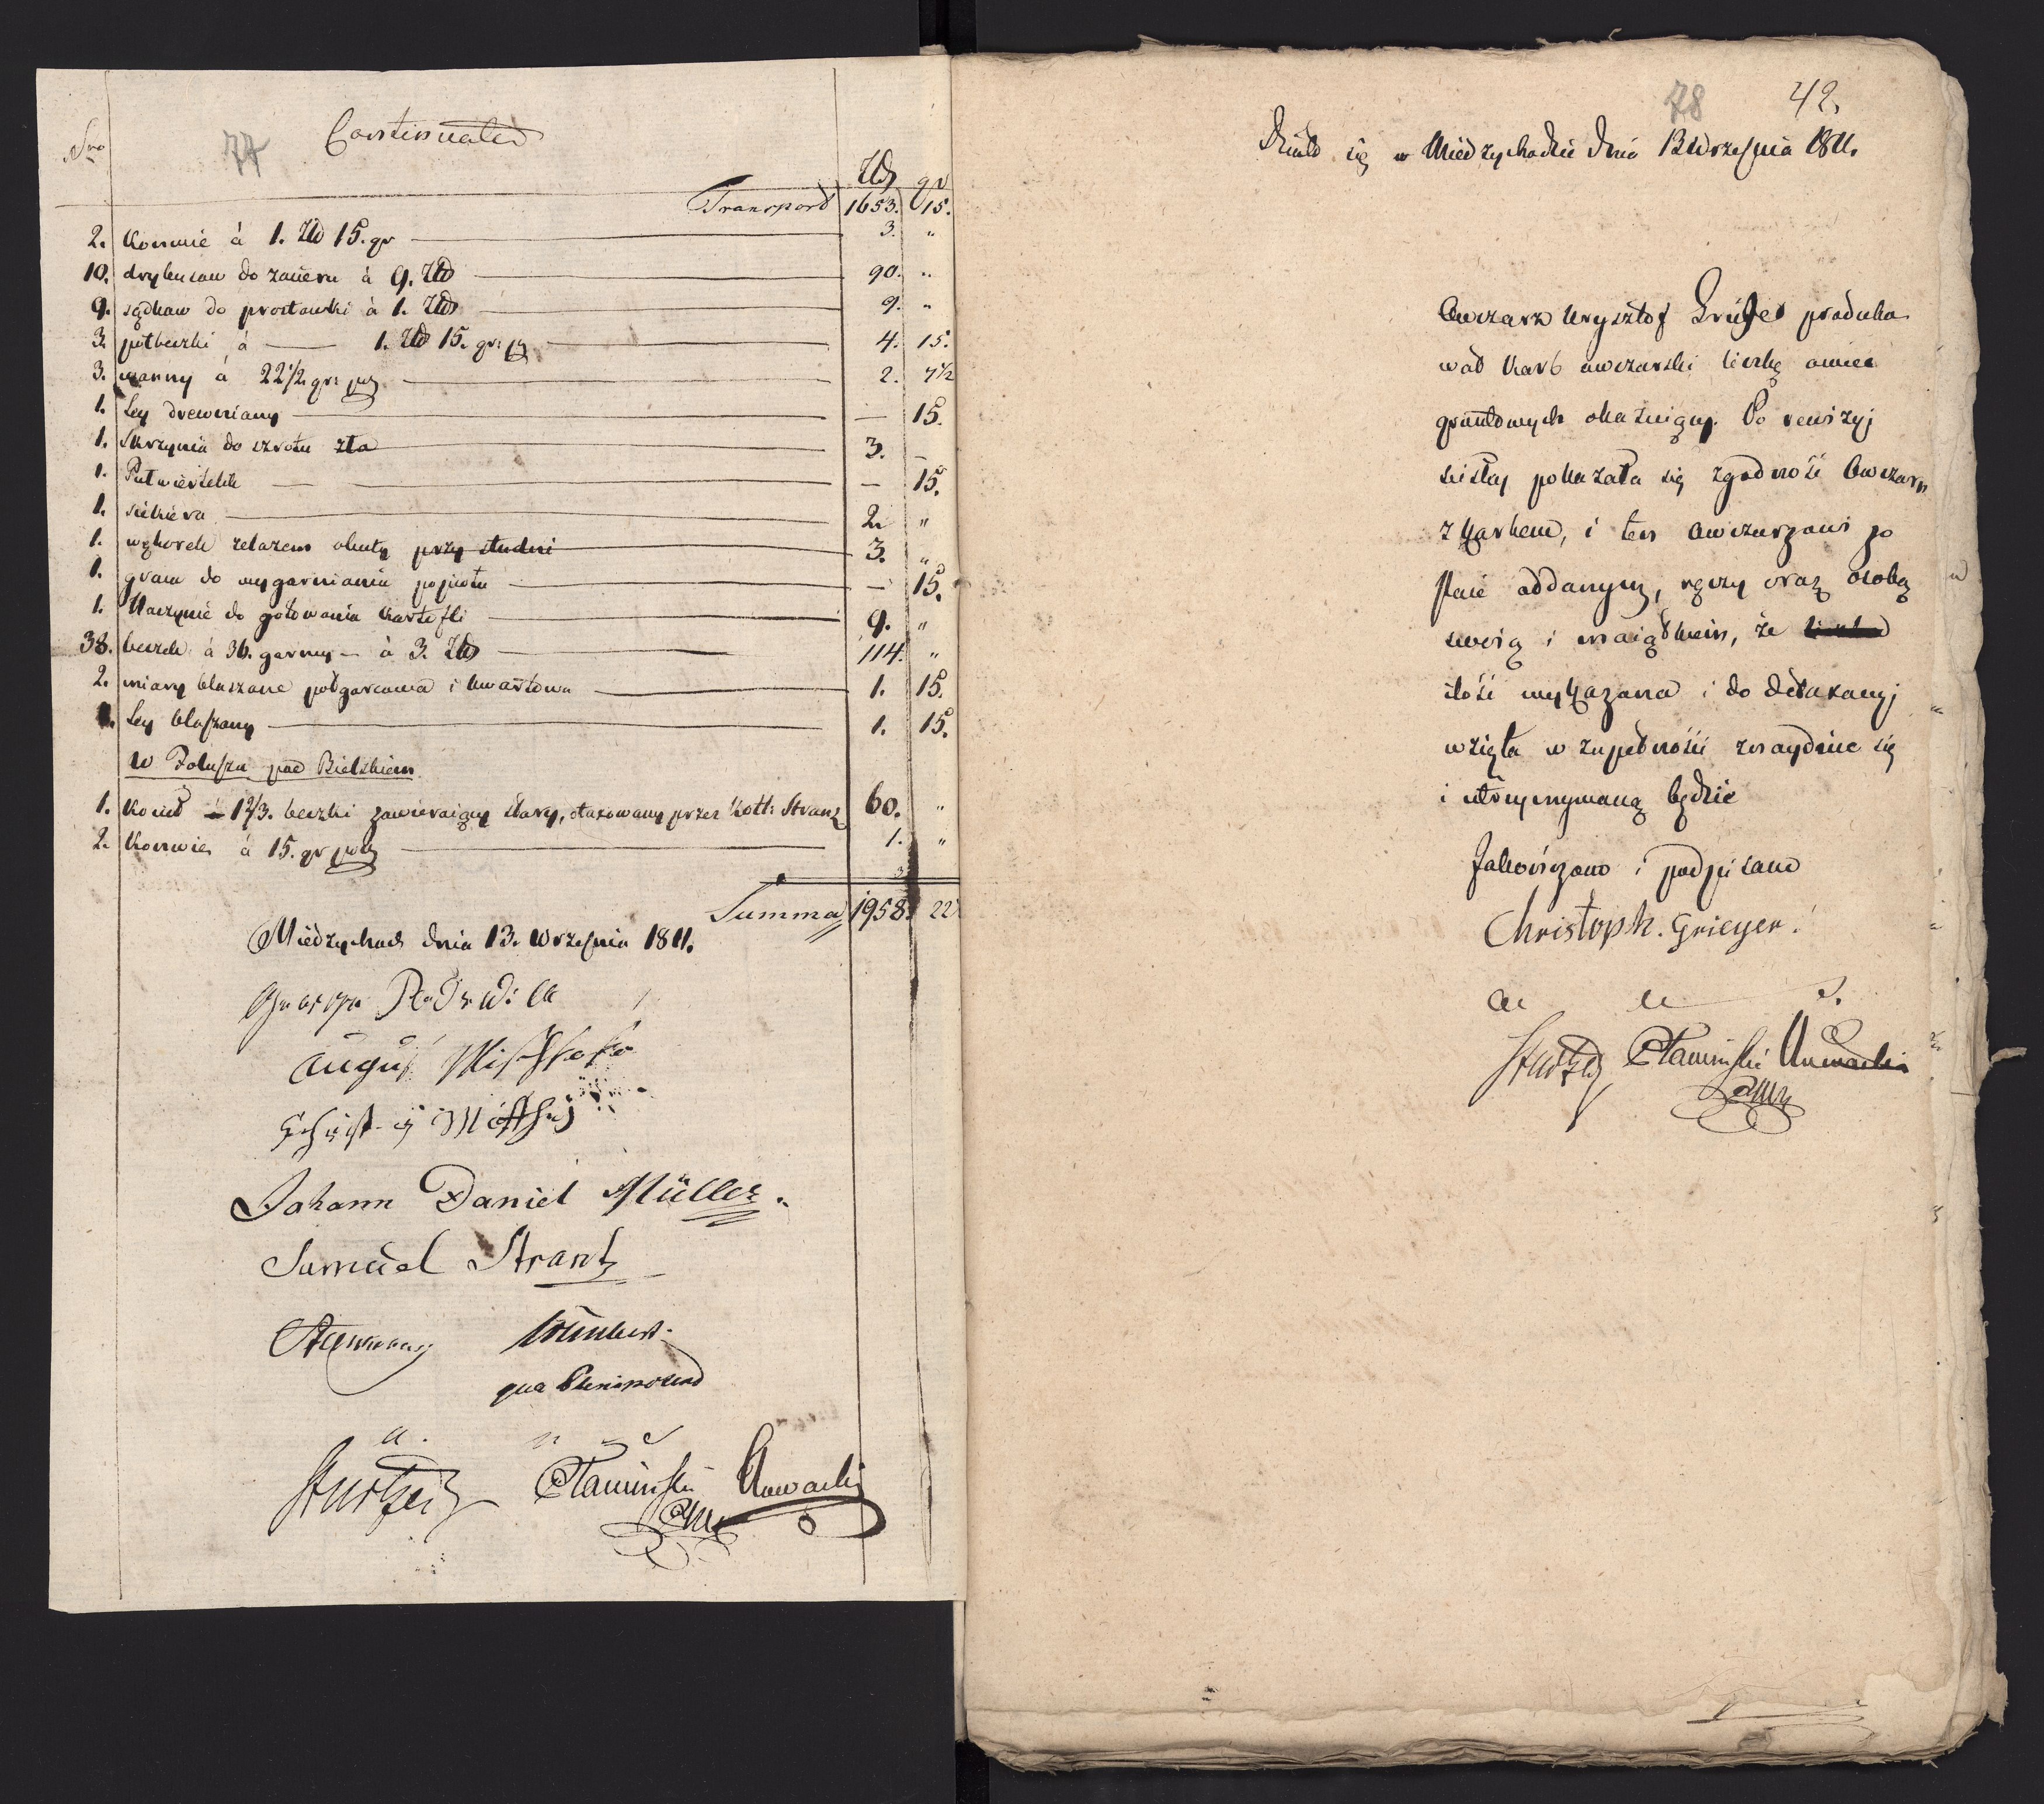 77
Continuatio
Nro
Złt gr
Transport 1653. 15.
2. Konwie á 1. Złt 15. gr 3. "
10. drybusow do zacieru á 9. Złt 90. "
9. sądkow do prostowki á 1. Złt 9. "
3. półbeczki á 1. Złt 15. gr: 4. 15.
3. wanny á 22 1/2 gr: 2. 7 1/2
1. Ley drewniany — 15.
1. Skrzynia do szrotu zła 3. —
1. Putwiertelek — 15.
1. siekiera 2. "
1. węborek zelazem okuty przy studni 3. "
1. graca do wygarniania popiołu — 15.
1. Naczynie do gotowania kartofli 9. "
38. beczek á 36. garncy — á 3. Złt 114. "
2. miary blaszane połgarcowa i kwartowa 1. 15.
1. Ley blaszany 1. 15.
w Toluszu pod Bielskiem
1. Kocieł 1 2/3. beczki zawieraiący stary, otaxowany przez Kotl: Strantz 60. "
2. Konwie á 15. gr 1. "
Summa 1958. 22
Międzychod dnia 13. Września 1811.
August
Johann Daniel Müller.
Samuel Strantz
qua Plenipotent
a. u s
Sturtzel Stawinski Nowacki
78 42.
Działo się w Międzychodzie dnia 13 Września 1811.
Owczarz Krysztof produko
wał karb owczarski liczbę owiec
gruntowych okazuiący. Po rewizyi
scisłey pokazała się zgodność Owczarn
z Karbem, i ten Owczarzowi po
stacie oddanym, ręczy oraz osobą
swoią i maiątkiem, że
ilość wykazana i do detaxacyi
wzięta w zupełności znaydzie się
i utrzymywaną będzie
Zakończono i podpisano
Christoph. Grieger.
a u s.
Sturtzel Stawinski Nowacki